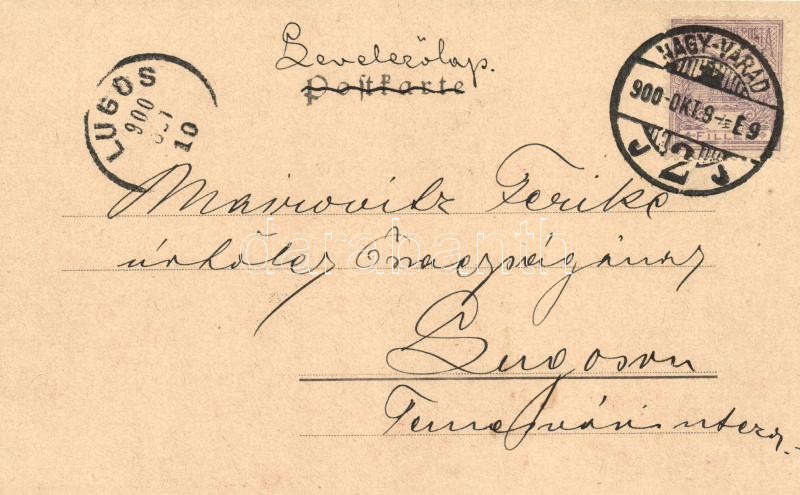 Levelezőlap.
Postkarte
LUGOS
900
OKT
10
NAGY-VÁRAD
900-OKT.9-E 9
2
Mairovitz Ferike
úrhölgy Őnagyságának
Lugoson
Temesvár intera.
darabanth